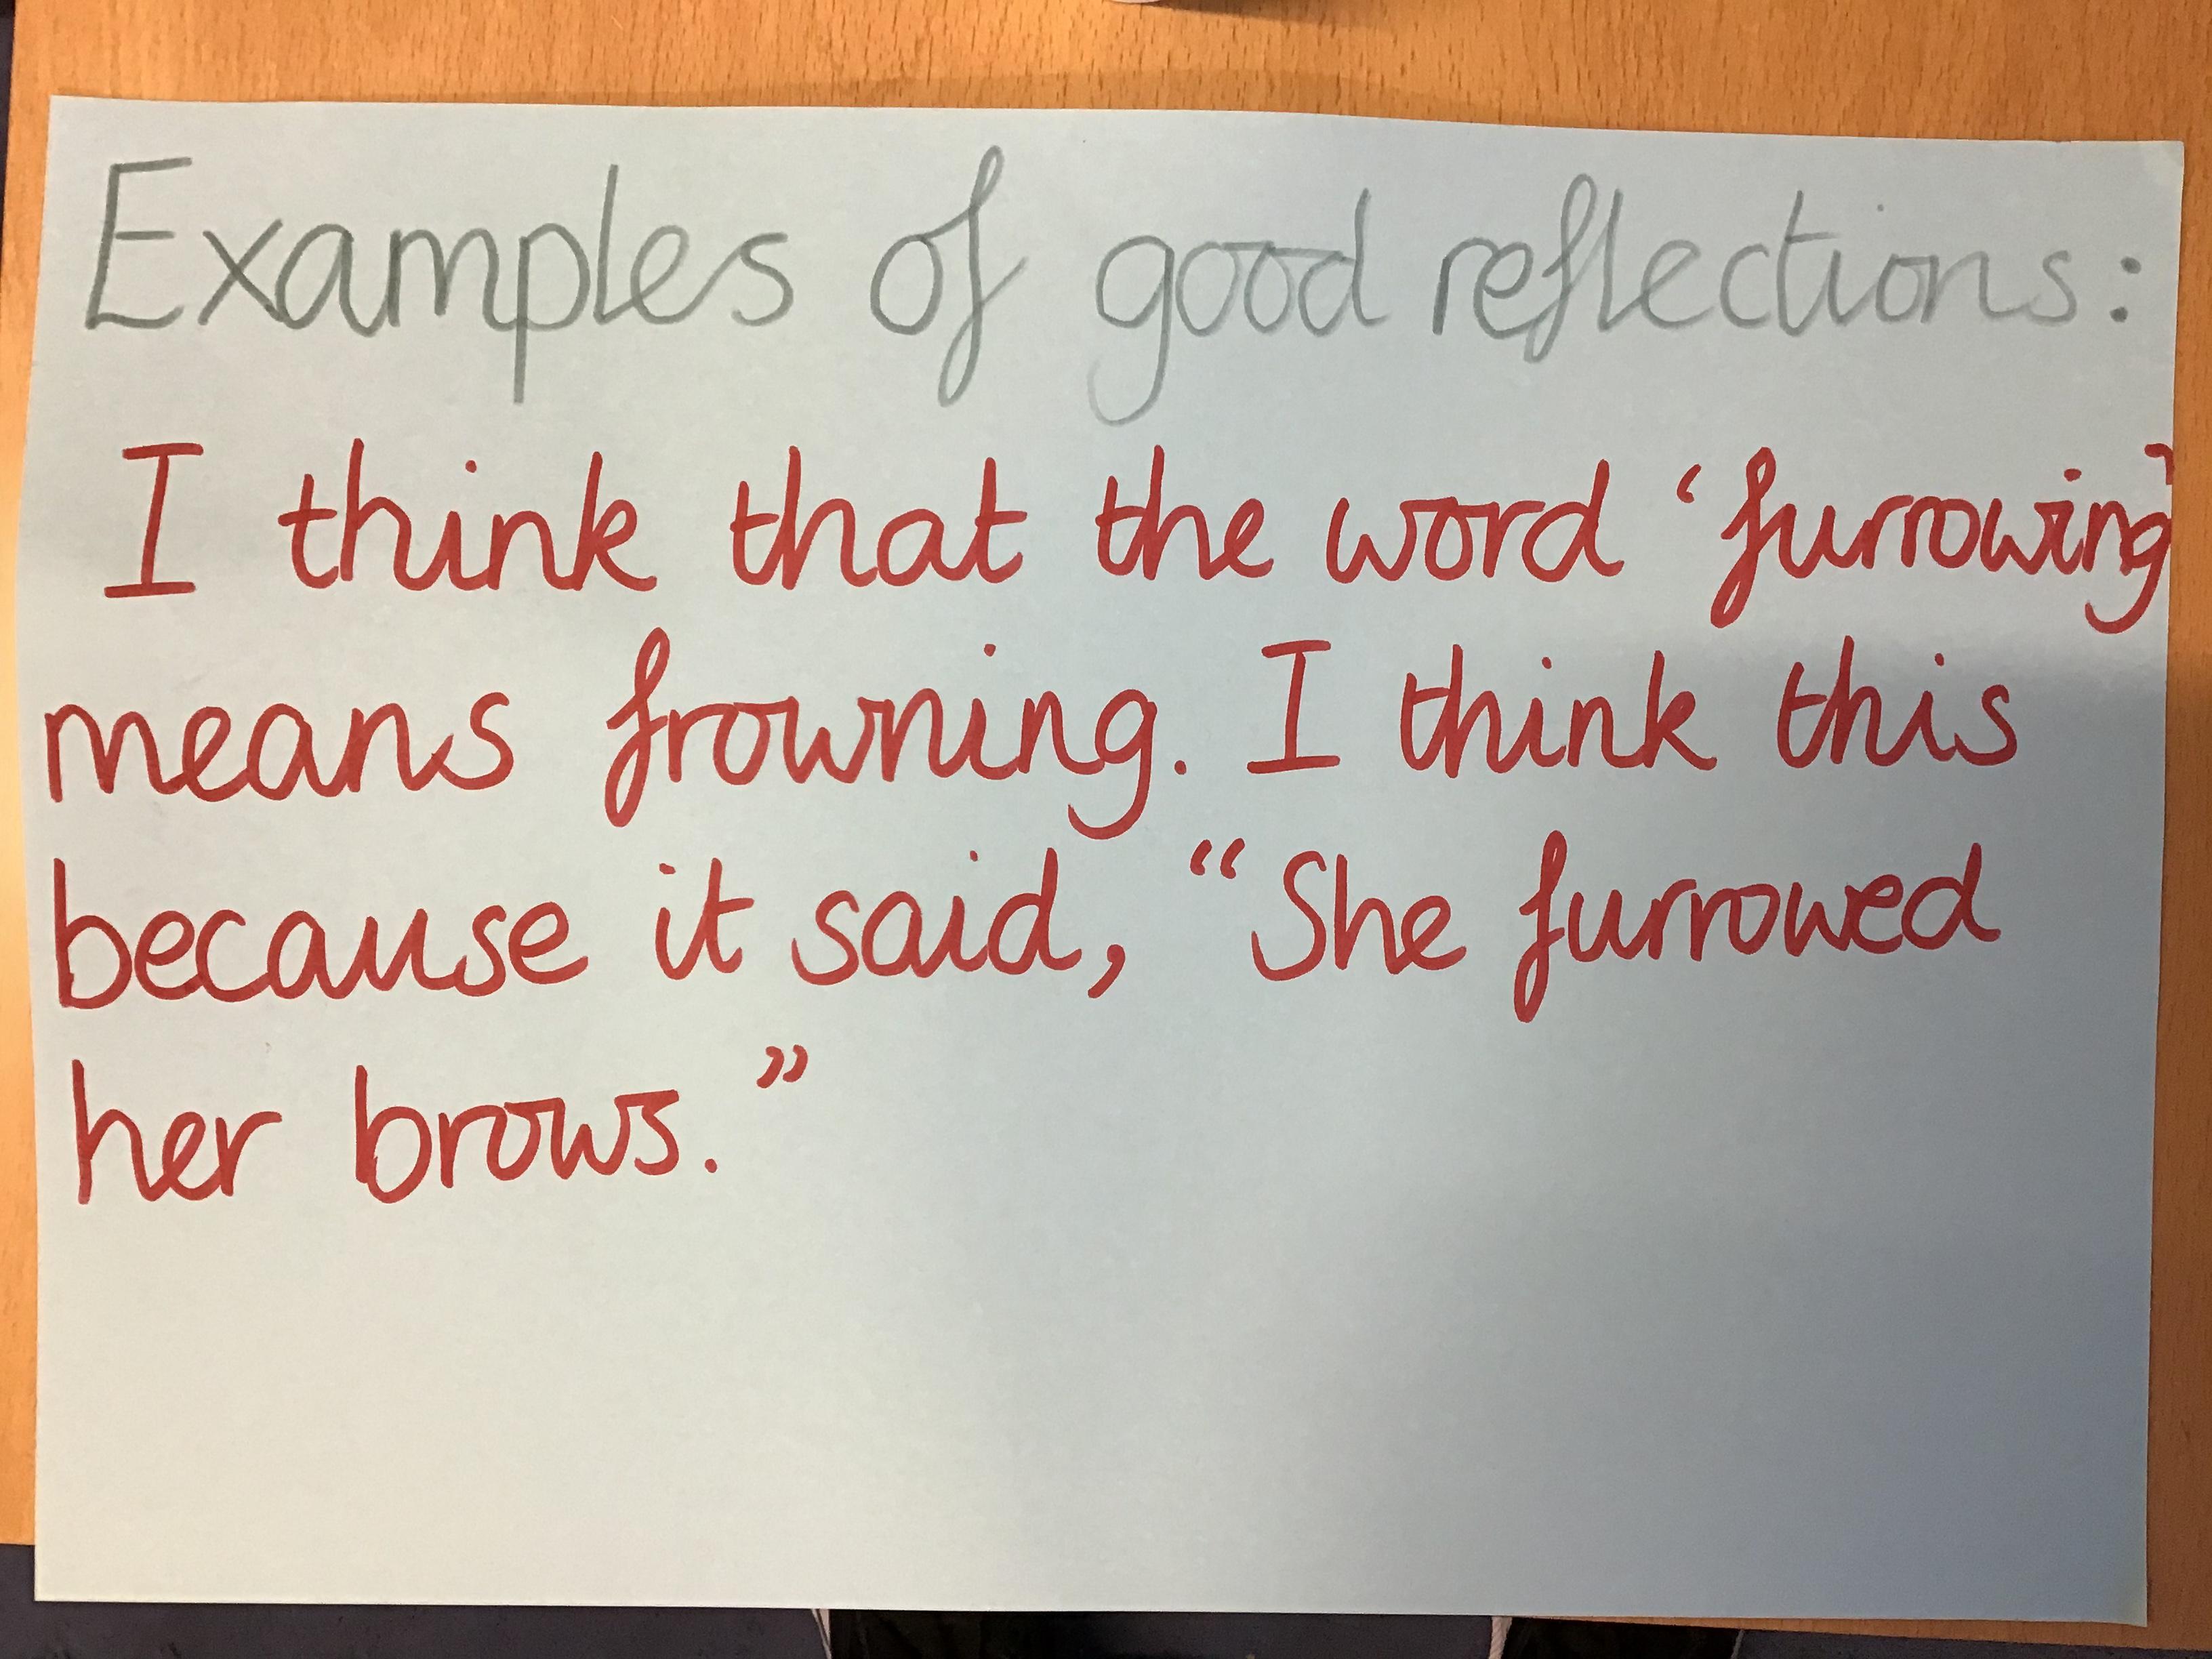 Examples of good reflections:
I think that the word ‘furrowing’
means frowning. I think this
because it said, “She furrowed
her brows.”